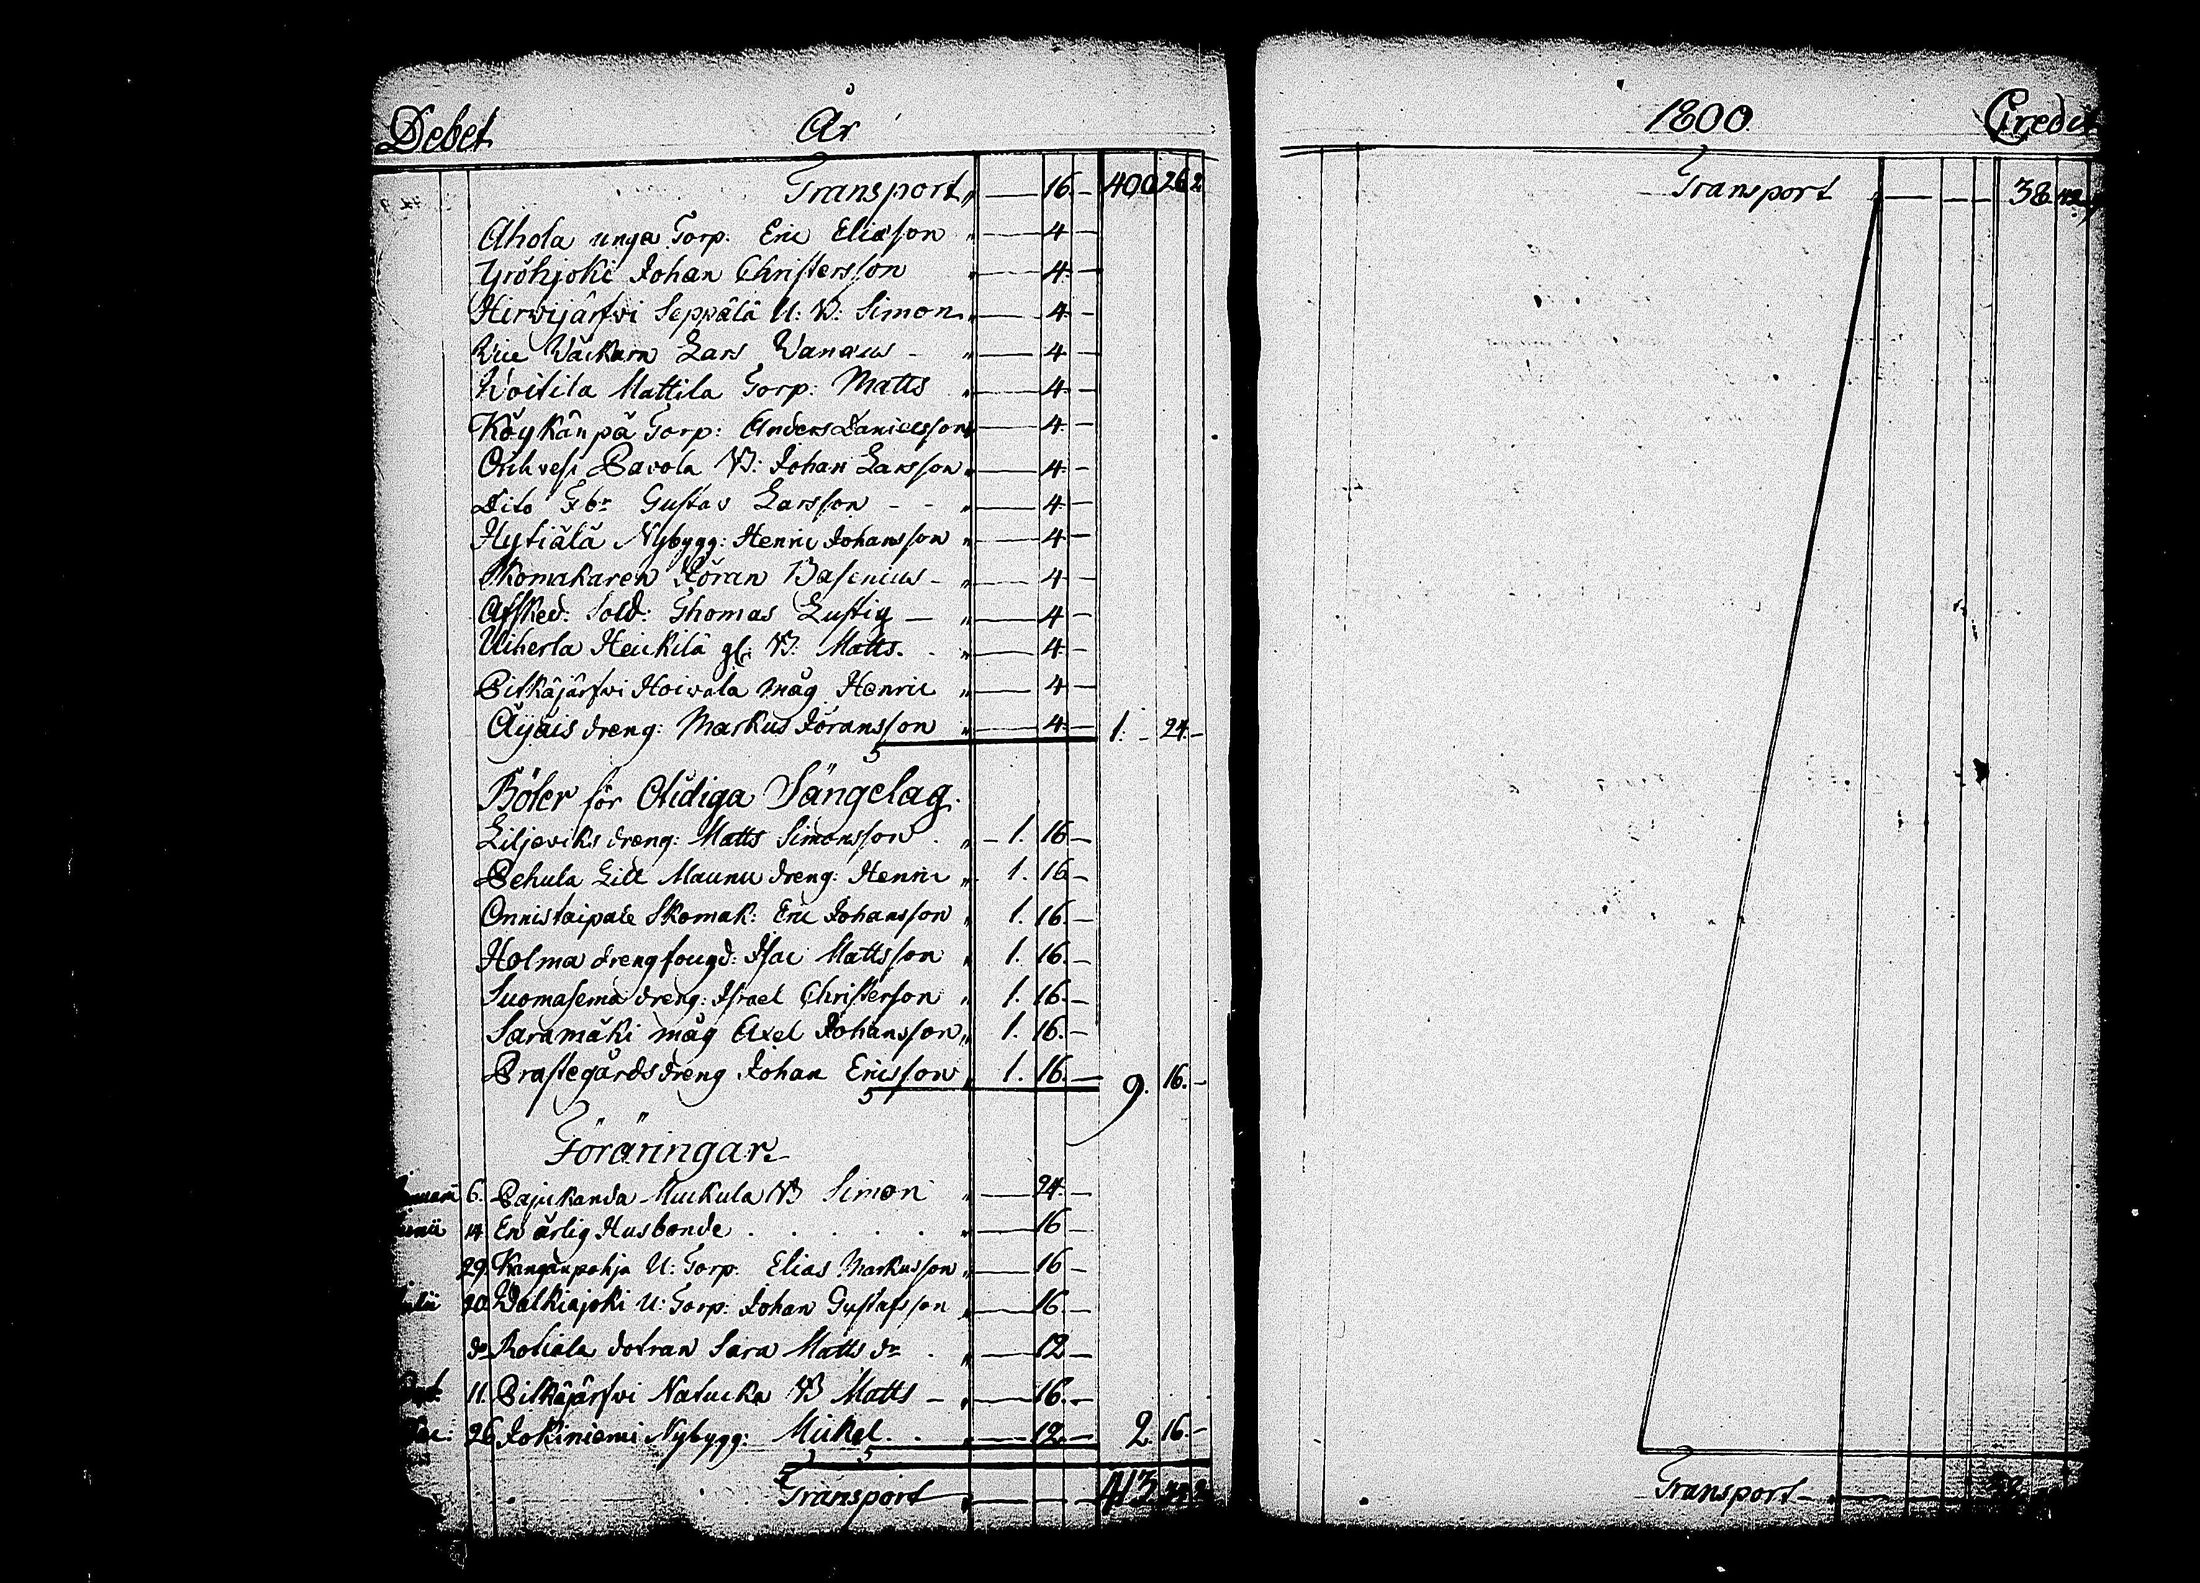 Debet År
Transport " — 16. — 400. 26. 2
Ahola unga Torp: Eric Eliasson " — 4 —
Yröhjoki Johan Christersson " — 4. —
Hirvijärfvi Seppälä U: B: Simon " — 4. —
Vice Väckarn Lars Wanæus - " — 4 —
Woitila Mattila Torp: Matts " — 4. —
Köykänpä Torp: Anders Danielsson " — 4. —
Pavola B: Johan Larsson " — 4. —
Dito Gustas Larsson - - " — 4. —
Hytiälä Nybygg: Henric Johansson " — 4 —
Skomakaren Jöran Basenius - " — 4 —
Afsked. Sold: Thomas Lustig — " — 4 —
Uiherla Heickilä gl: B: Matts. . " — 4. —
Pitkäjärfvi Hoivala måg Henric " — 4 —
Äijäis dreng: Markus Jöransson " — 4 — 1. — 24. —
Böter för Otidiga Sängelag.
Liljeviks dreng: Matts Simonsson . " — 1. 16 —
Pehula Lill Maunu dreng: Henric " 1. 16 —
Onnistaipale Skomak: Eric Johansson " 1. 16. —
Holma drengfougd: Isac Mattsson " 1. 16. —
Suomasema dreng: Israel Christerson " 1. 16. —
Saramäki måg Axel Johansson " 1. 16. —
Prästegårds dreng Johan Ericsson " 1. 16. — 9. 16. —
Föräringar
6. Pajukanda Muckula B Simon " — 24. —
14. En ärlig Husbonde . . . . . " — 16
29. Kangänpohja U: Torp: Elias Markusson " — 16 —
20. Walkiajoki U: Torp: Johan Gustafsson " — 16. —
do Rotiala dotran Sara Matts dr . " — 12 —
11. Pitkäjärfvi Natucka B Matts — " — 16. —
26. Jokiniemi Nybygg: Mickel . . " — 12. — 2. 16. —
Transport " — — 413.
1800. Credit
Transport " — — — 38.
Transport —